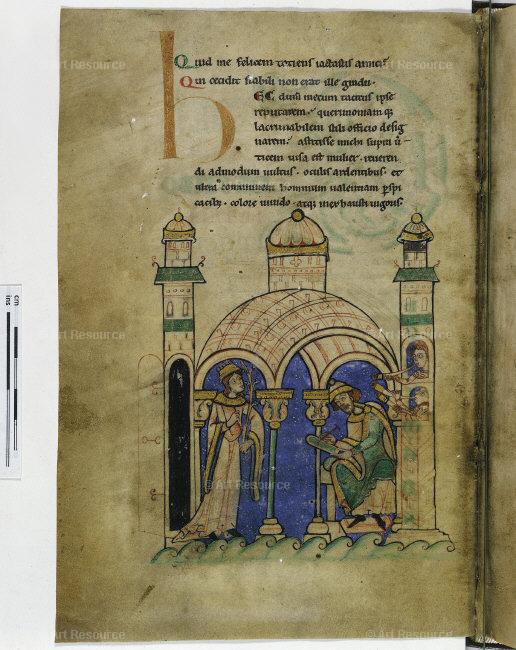 Quid me felicem totiens iactastis amici
Qui cecidit stabili non erat ille gradu.
hEC dum mecum tacitus ipse
reputarem. querimoniamq;
lacrimabilem stili officio desig
narem. astitisse michi supra ũ
ticem uisa est mulier. reueren
di admodum uultus. oculis ardentibus. et
ultra communem hominum ualentiam pspi
cacibꝫ. colore uiuido. atqꝫ inexhausti uigoris.
cm
ins
© Art Resource